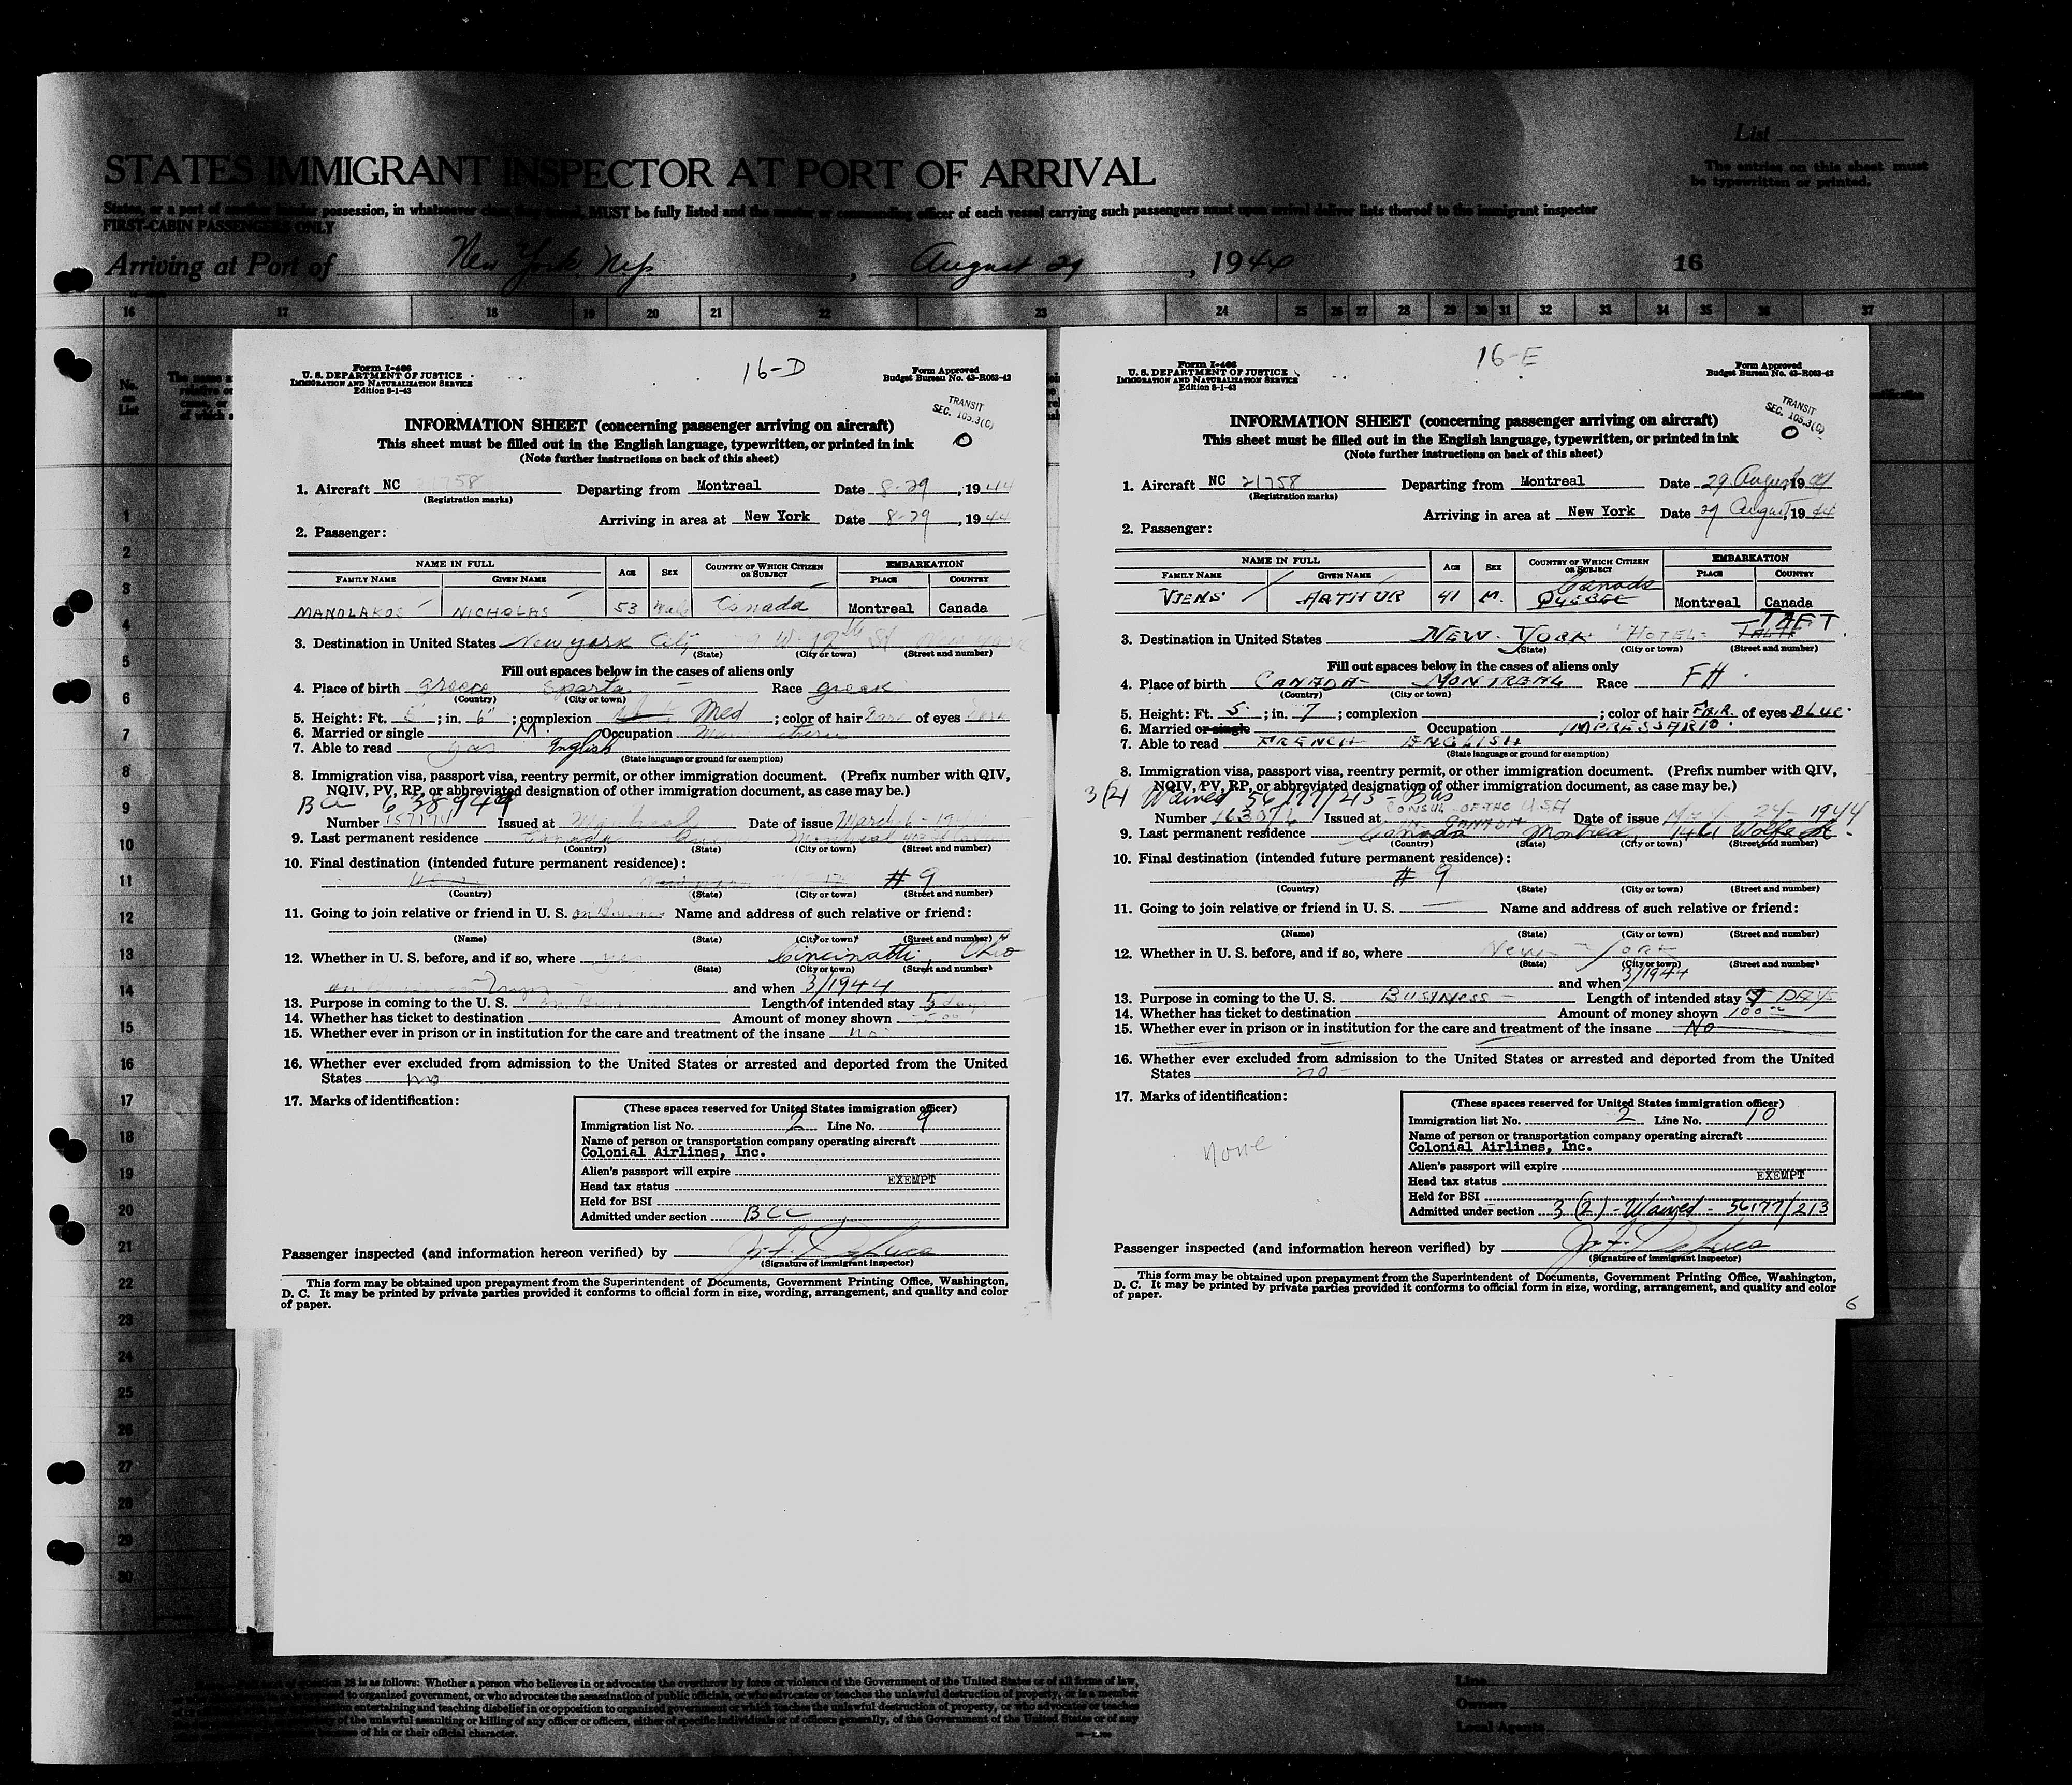 List
STATES IMMIGRANT INSPECTOR AT PORT OF ARRIVAL
The entries on this sheet must
be typewritten or printed.
possession, in whatsoever MUST be fully listed and the officer of each vessel carrying such passengers must upon arrival deliver lists thereof to the immigrant inspector
FIRST-CABIN PASSENGERS ONLY
Arriving at Port of New York, August 29, 1944
16
16 17 18 19 20 21 22 23 24 25 26 27 28 29 30 31 32 33 34 35 36 37
No. on List
1
2
3
4
5
6
7
8
9
10
11
12
13
14
15
16
17
18
19
20
21
22
23
24
25
26
27
28
29
30
16-D
Form I-466
U. S. DEPARTMENT OF JUSTICE
IMMIGRATION AND NATURALIZATION SERVICE
Edition 8-1-43
Form Approved
Budget Bureau No. 43-R063-42
TRANSIT
SEC. 105.3(C)
INFORMATION SHEET (concerning passenger arriving on aircraft)
This sheet must be filled out in the English language, typewritten, or printed in ink
(Note further instructions on back of this sheet)
1. Aircraft NC 21758 Departing from Montreal Date 8-29, 1944
(Registration marks)
Arriving in area at New York Date 8-29, 1944
2. Passenger:
NAME IN FULL AGE SEX COUNTRY OF WHICH CITIZEN OR SUBJECT EMBARKATION
FAMILY NAME GIVEN NAME PLACE COUNTRY
MANOLAKOS NICHOLAS 53 Male Canada Montreal Canada
3. Destination in United States New York City
(State) (City or town) (Street and number)
Fill out spaces below in the cases of aliens only
4. Place of birth Greece Sparta Race Greek
(Country) (City or town)
5. Height: Ft. 5; in. 6"; complexion Med; color of hair Dark of eyes
6. Married or single M. Occupation
7. Able to read yes English
(State language or ground for exemption)
8. Immigration visa, passport visa, reentry permit, or other immigration document. (Prefix number with QIV,
NQIV, PV, RP, or abbreviated designation of other immigration document, as case may be.)
BCC 638949
Number Issued at Montreal Date of issue March 6-
9. Last permanent residence Canada Montreal
(Country) (State) (City or town) (Street and number)
10. Final destination (intended future permanent residence):
# 9
(Country) (State) (City or town) (Street and number)
11. Going to join relative or friend in U. S. on Business Name and address of such relative or friend:
(Name) (State) (City or town) (Street and number)
12. Whether in U. S. before, and if so, where yes Cincinatti, Ohio
(State) (City or town) (Street and number)
and when 3/1944
13. Purpose in coming to the U. S. Length of intended stay 5 days
14. Whether has ticket to destination Amount of money shown
15. Whether ever in prison or in institution for the care and treatment of the insane no
16. Whether ever excluded from admission to the United States or arrested and deported from the United
States no
17. Marks of identification:
(These spaces reserved for United States immigration officer)
Immigration list No. 2 Line No. 9
Name of person or transportation company operating aircraft
Colonial Airlines, Inc.
Alien's passport will expire
Head tax status EXEMPT
Held for BSI
Admitted under section BCC
Passenger inspected (and information hereon verified) by
(Signature of immigrant inspector)
This form may be obtained upon prepayment from the Superintendent of Documents, Government Printing Office, Washington,
D. C. It may be printed by private parties provided it conforms to official form in size, wording, arrangement, and quality and color
of paper.
16-E
Form I-466
U. S. DEPARTMENT OF JUSTICE
IMMIGRATION AND NATURALIZATION SERVICE
Edition 8-1-43
Form Approved
Budget Bureau No. 43-R063-42
TRANSIT
SEC. 105.3(C)
INFORMATION SHEET (concerning passenger arriving on aircraft)
This sheet must be filled out in the English language, typewritten, or printed in ink
(Note further instructions on back of this sheet)
1. Aircraft NC 21758 Departing from Montreal Date 29 August 1944
(Registration marks)
Arriving in area at New York Date 29 August, 1944
2. Passenger:
NAME IN FULL AGE SEX COUNTRY OF WHICH CITIZEN OR SUBJECT EMBARKATION
FAMILY NAME GIVEN NAME PLACE COUNTRY
Canada
VIENS ARTHUR 41 M. QUEBEC Montreal Canada
TAFT
3. Destination in United States NEW-YORK HOTEL-
(State) (City or town) (Street and number)
Fill out spaces below in the cases of aliens only
4. Place of birth CANADA- MONTREAL Race FH.
(Country) (City or town)
5. Height: Ft. 5; in. 7; complexion ; color of hair FAIR. of eyes BLUE.
6. Married or single Occupation IMPRESSARIO.
7. Able to read FRENCH ENGLISH
(State language or ground for exemption)
8. Immigration visa, passport visa, reentry permit, or other immigration document. (Prefix number with QIV,
NQIV, PV, RP, or abbreviated designation of other immigration document, as case may be.)
3(2) Waived 56177/213 - Bus
CONSUL OF THE USA
Number 163076 Issued at IN CANADA Date of issue MAY 24 1944
9. Last permanent residence Canada Montreal, 1461 Wolfe St.
(Country) (State) (City or town) (Street and number)
10. Final destination (intended future permanent residence):
# 9
(Country) (State) (City or town) (Street and number)
11. Going to join relative or friend in U. S. — Name and address of such relative or friend:
(Name) (State) (City or town) (Street and number)
12. Whether in U. S. before, and if so, where New-York
(State) (City or town) (Street and number)
and when 3/1944
13. Purpose in coming to the U. S. BUSINESS- Length of intended stay 7 DAYS
14. Whether has ticket to destination Amount of money shown 100.00
15. Whether ever in prison or in institution for the care and treatment of the insane No
16. Whether ever excluded from admission to the United States or arrested and deported from the United
States no-
17. Marks of identification:
None
(These spaces reserved for United States immigration officer)
Immigration list No. 2 Line No. 10
Name of person or transportation company operating aircraft
Colonial Airlines, Inc.
Alien's passport will expire
Head tax status EXEMPT
Held for BSI
Admitted under section 3(2)-Waived-56177/213
Passenger inspected (and information hereon verified) by
(Signature of immigrant inspector)
This form may be obtained upon prepayment from the Superintendent of Documents, Government Printing Office, Washington,
D. C. It may be printed by private parties provided it conforms to official form in size, wording, arrangement, and quality and color
of paper.
6
is as follows: Whether a person who believes in or advocates the overthrow by force or violence of the Government of the United States or of all forms of law,
to organized government, or who advocates the assassination of public officials, or who advocates or teaches the unlawful destruction of property, or is a member
entertaining and teaching disbelief in or opposition to organized government or which teaches the unlawful destruction of property, or who advocates or teaches
of the unlawful assaulting or killing of any officer or officers, either of specific individuals or of officers generally, of the Government of the United States or of any
of his or their official character.
Line
Owners
Local Agents